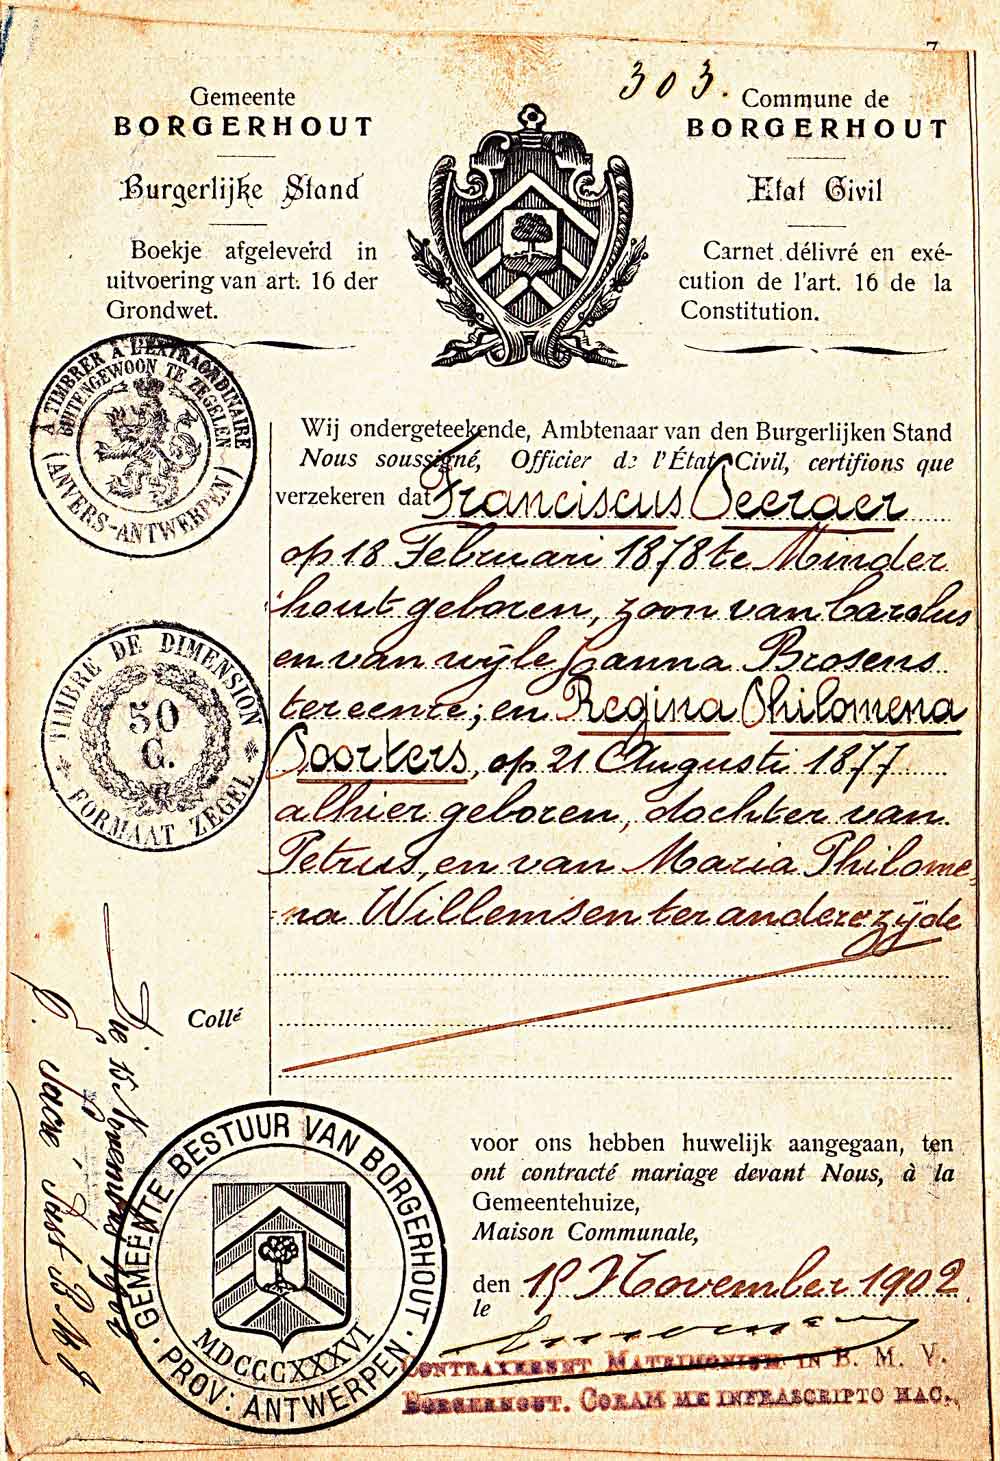 7
303.
Gemeente
BORGERHOUT
Burgerlijke Stand
Boekje afgeleverd in
uitvoering van art. 16 der
Grondwet.
Commune de
BORGERHOUT
Etat Civil
Carnet délivré en exé-
cution de l'art. 16 de la
Constitution.
A TIMBRER A L'EXTRAORDINAIRE
BUITENGEWOON TE ZEGELEN
(ANVERS-ANTWERPEN)
Wij ondergeteekende, Ambtenaar van den Burgerlijken Stand
Nous soussigné, Officier de l'État Civil, certifions que
verzekeren dat Franciscus Peeraer
op 18 Februari 1878 te Minder
hout geboren, zoon van Carolus
en van wijle Joanna Brosens
ter eenre; en Regina Philomena
Poorters, op 21 Augusti 1877
alhier geboren, dochter van
Petrus, en van Maria Philome
na Willemsen ter andere zijde
TIMBRE DE DIMENSION
50
G.
* FORMAAT ZEGEL *
Collé
Die 15 Novembris 1902
voor ons hebben huwelijk aangegaan, ten
ont contracté mariage devant Nous, à la
Gemeentehuize,
Maison Communale,
den 15 November 1902
le
GEMEENTE BESTUUR VAN BORGERHOUT
MDCCCXXXVI
PROV: ANTWERPEN
CONTRAXERUNT MATRIMONIUM IN B. M. V.
BORGERHOUT. CORAM ME INFRASCRIPTO HAC.